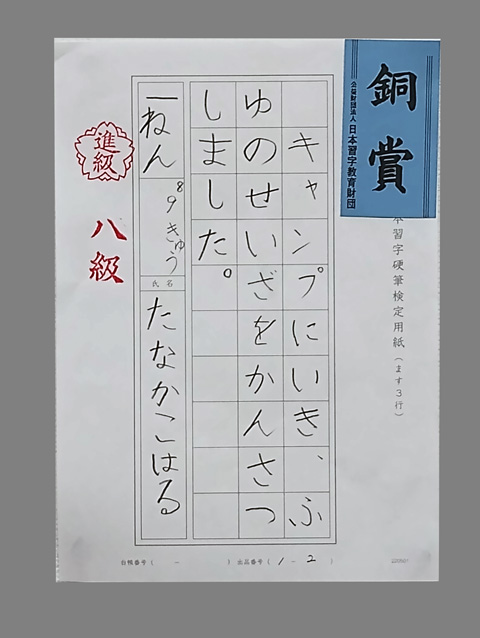 銅賞
公益財団法人 日本習字教育財団
本習字硬筆検定用紙(ます3行)
キャンプにいき、ふ
ゆのせいざをかんさつ
しました。
一ねん
8
9きゅう
氏名
たなかこはる
進級
八級
自鴨番号( - ) 出品番号(1-2)